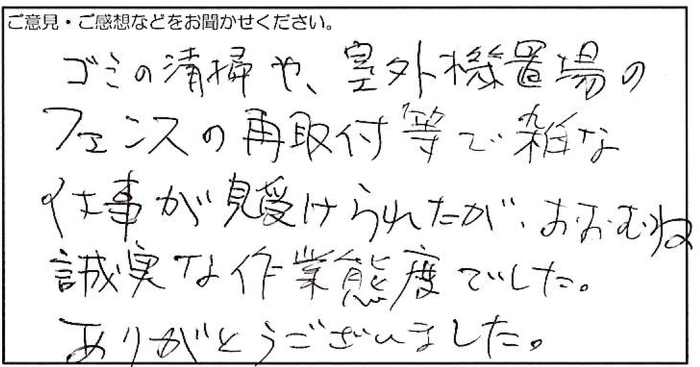 ご意見・ご感想などをお聞かせください。
ゴミの清掃や、室外機置場の
フェンスの再取付等で雑な
仕事が見受けられたが、おおむね
誠実な作業態度でした。
ありがとうございました。